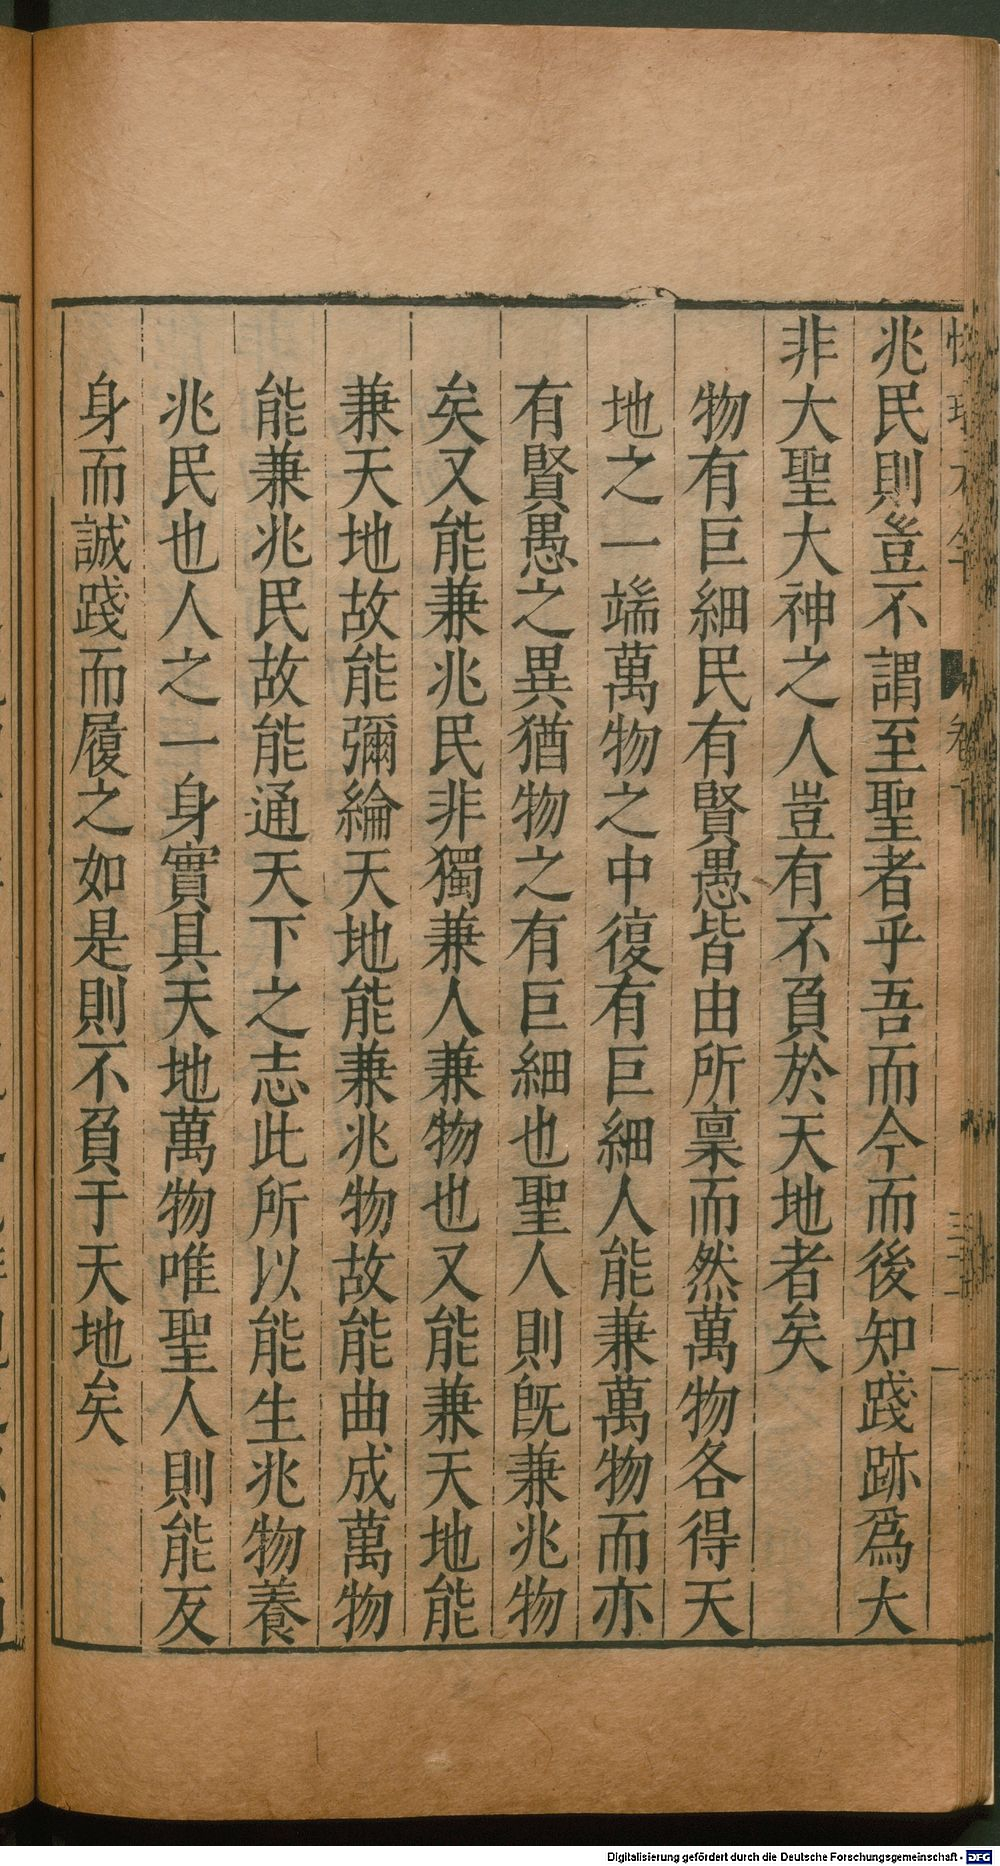 兆民則豈不謂至聖者乎吾而今而後知踐跡爲大
非大聖大神之人豈有不負於天地者矣
物有巨細民有賢愚皆由所稟而然萬物各得天
地之一端萬物之中復有巨細人能兼萬物而亦
有賢愚之異猶物之有巨細也聖人則旣兼兆物
矣又能兼兆民非獨兼人兼物也又能兼天地能
兼天地故能彌綸天地能兼兆物故能曲成萬物
能兼兆民故能通天下之志此所以能生兆物養
兆民也人之一身實具天地萬物唯聖人則能反
身而誠踐而履之如是則不負于天地矣
Digitalisierung gefördert durch die Deutsche Forschungsgemeinschaft - DFG